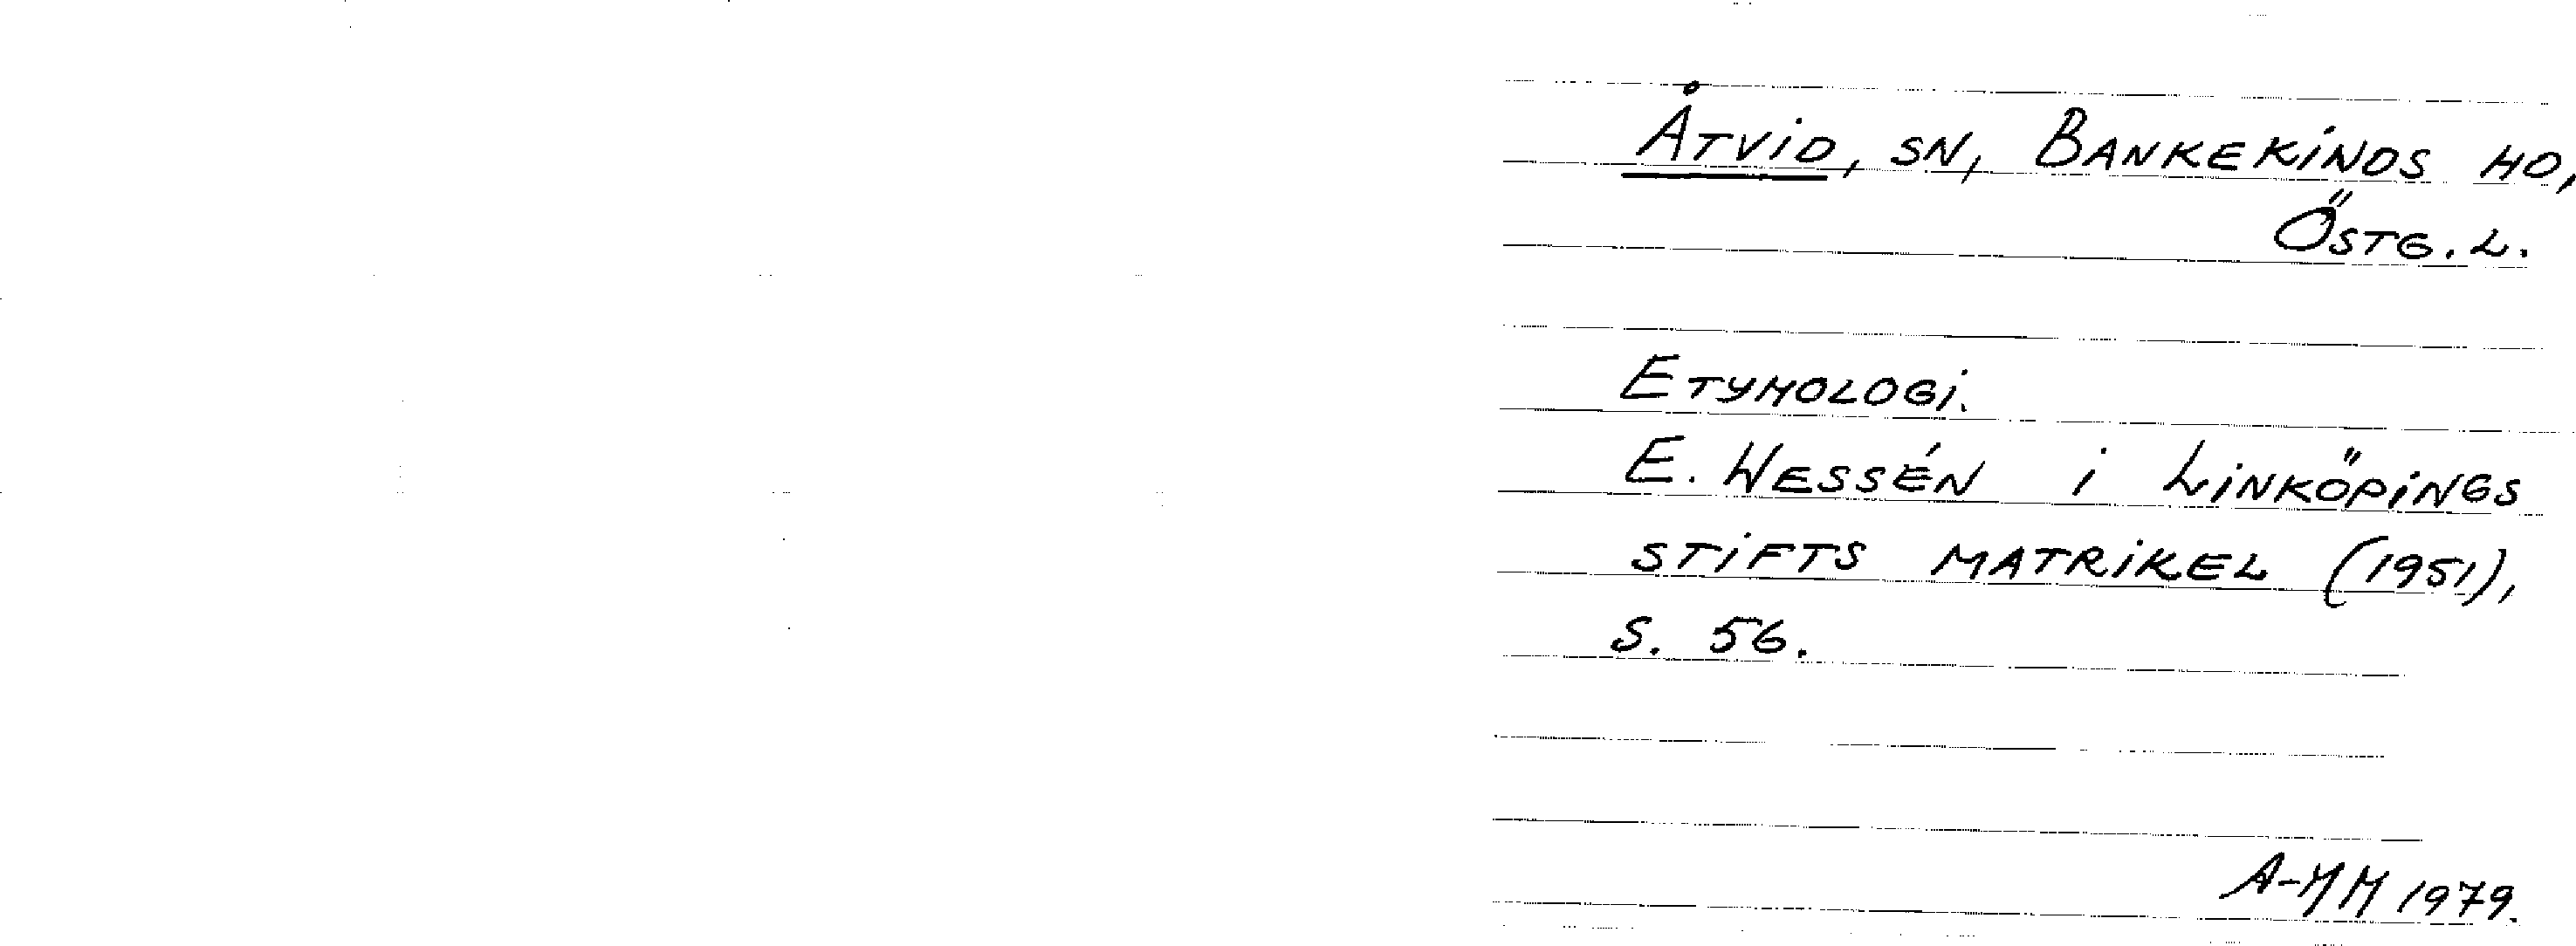 Åtvid, sn, Bankekinds hd,
Östg. L.
Etymologi.
E. Wessén i Linköpings
stifts matrikel (1951),
s. 56.
A-MM 1979.